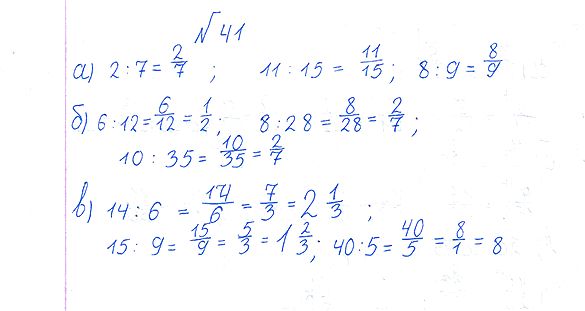 №41
а) 2:7 = 2/7 ; 11:15 = 11/15 ; 8:9 = 8/9
б) 6:12 = 6/12 = 1/2 ; 8:28 = 8/28 = 2/7 ;
10:35 = 10/35 = 2/7
в) 14:6 = 14/6 = 7/3 = 2 1/3 ;
15:9 = 15/9 = 5/3 = 1 2/3 ; 40:5 = 40/5 = 8/1 = 8